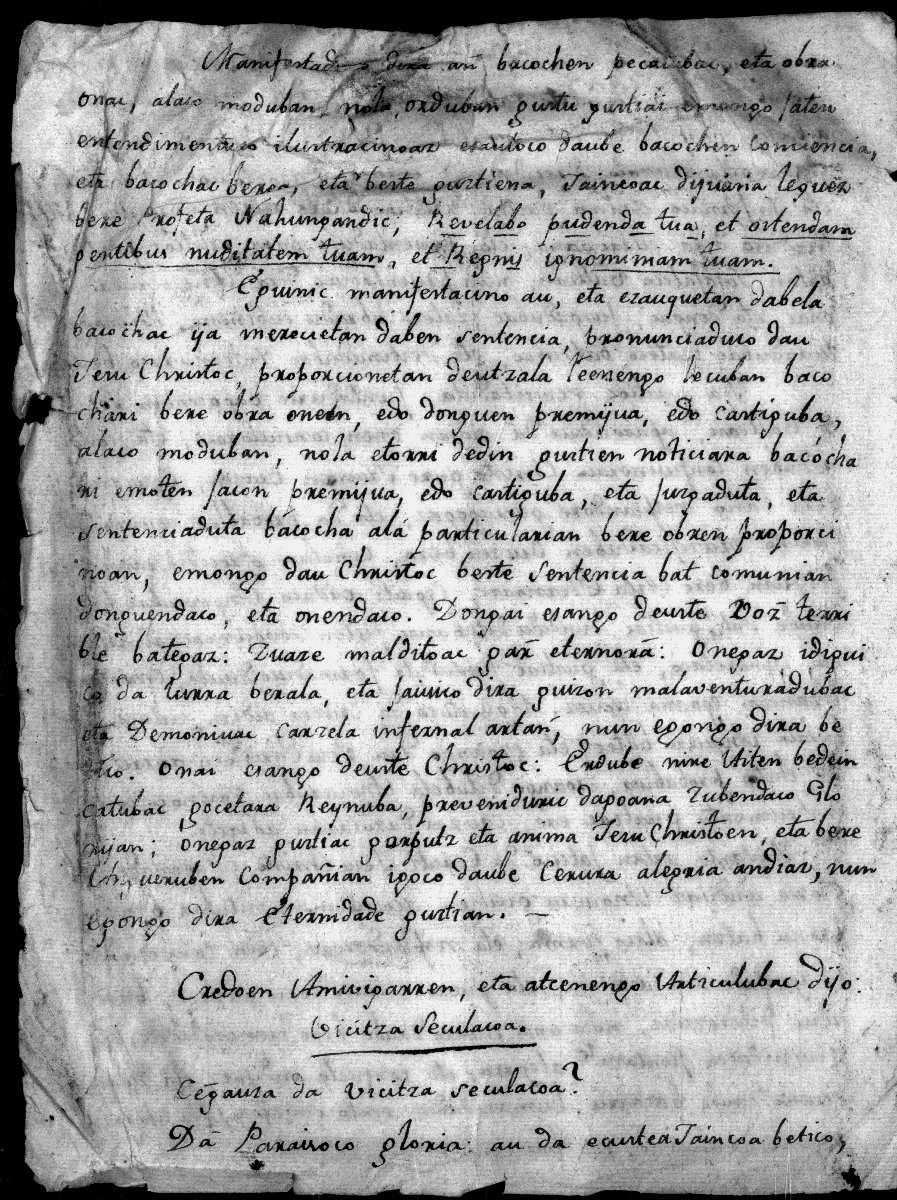 Manifestaduco dira an bacochen pecatubac, eta obra
onac, alaco moduban, nola, orduban gustu gustiai emongo jaten
entendimentuco ilustracinoaz esautuco daube bacochen conciencia,
eta bacochac berea, eta beste gustiena, Jaincoac dijuana leguez
bere Profeta Nahungandic; Revelabo pudenda tua, et ostendam
gentibus nuditatem tuam, et Regnis ignominiam tuam.
Eguinic manifestacino au, eta ezauquetan dabela
bacochac ija merecietan daben sentencia, pronunciaduco dau
Jesu Christoc, proporcionetan deutzala leenengo lecuban baco
chari bere obra onein, edo donguen premijua, edo castiguba,
alaco moduban, nola etorri dedin gustien noticiara bacocha
ri emoten jacon premijua, edo castiguba, eta juzgaduta, eta
sentenciaduta bacocha ala particularian bere obren proporci
noan, emongo dau Christoc beste sentencia bat comunian
donguendaco, eta onendaco. Dongai esango deuste voz terri
ble bategaz: Zuaze malditoac gar eternora: Onegaz idigui
co da lurra berala, eta jausico dira guizon malaventuradubac
eta Demoniuac Carzela infernal artan, nun egongo dira be
tico. Onai esango deuste Christoc: Erdube nire Aiten bedein
catubac gocetara Reynuba, preveniduric dagoana Zubendaco Glo
rijan; onegaz gustiac gorputz eta anima Jesu Christoen, eta bere
Aingueruben Compañian igoco daube Cerura alegria andiaz, nun
egongo dira Eternidade gustian. —
Credoen Amivigarren, eta atcenengo Articulubac dijo:
Vicitza Seculacoa.
Cegauza da vicitza seculacoa?
Da Paraisoco gloria: au da ecustea Jaincoa betico,